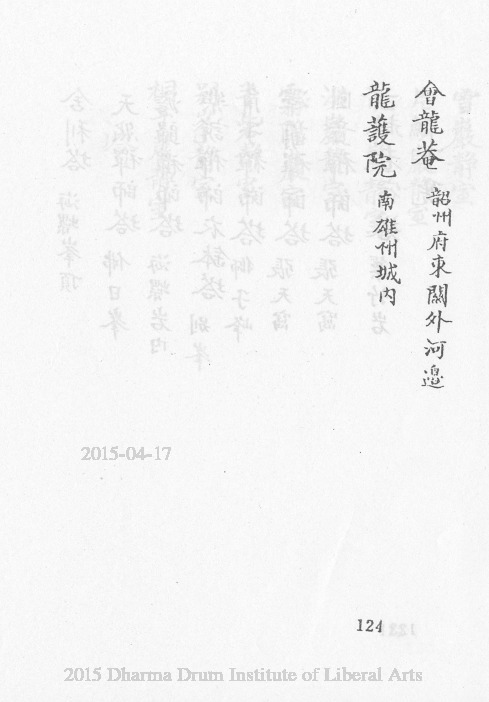 會龍菴 韶州府東關外河邊
龍護院 南雄州城內
2015-04-17
124
2015 Dharma Drum Institute of Liberal Arts